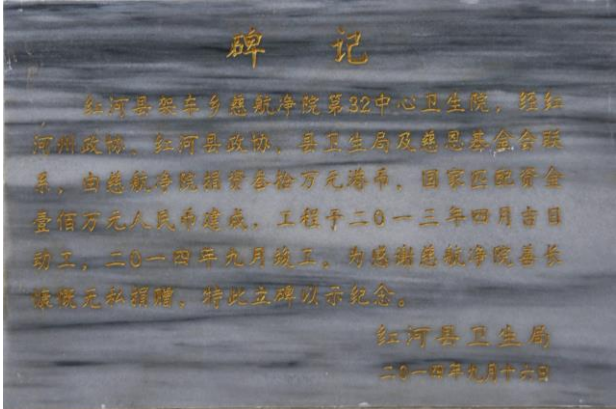 碑 记
红河县架车乡慈航净院第32中心卫生院，经红
河州政协、红河县政协、县卫生局及慈恩基金会联
系，由慈航净院捐资叁拾万元港币，国家匹配资金
壹佰万元人民币建成，工程于二0一三年四月吉日
动工，二0一四年九月竣工，为感谢慈航净院善长
慷慨无私捐赠，特此立碑以示纪念。
红河县卫生局
二0一四年九月十六日